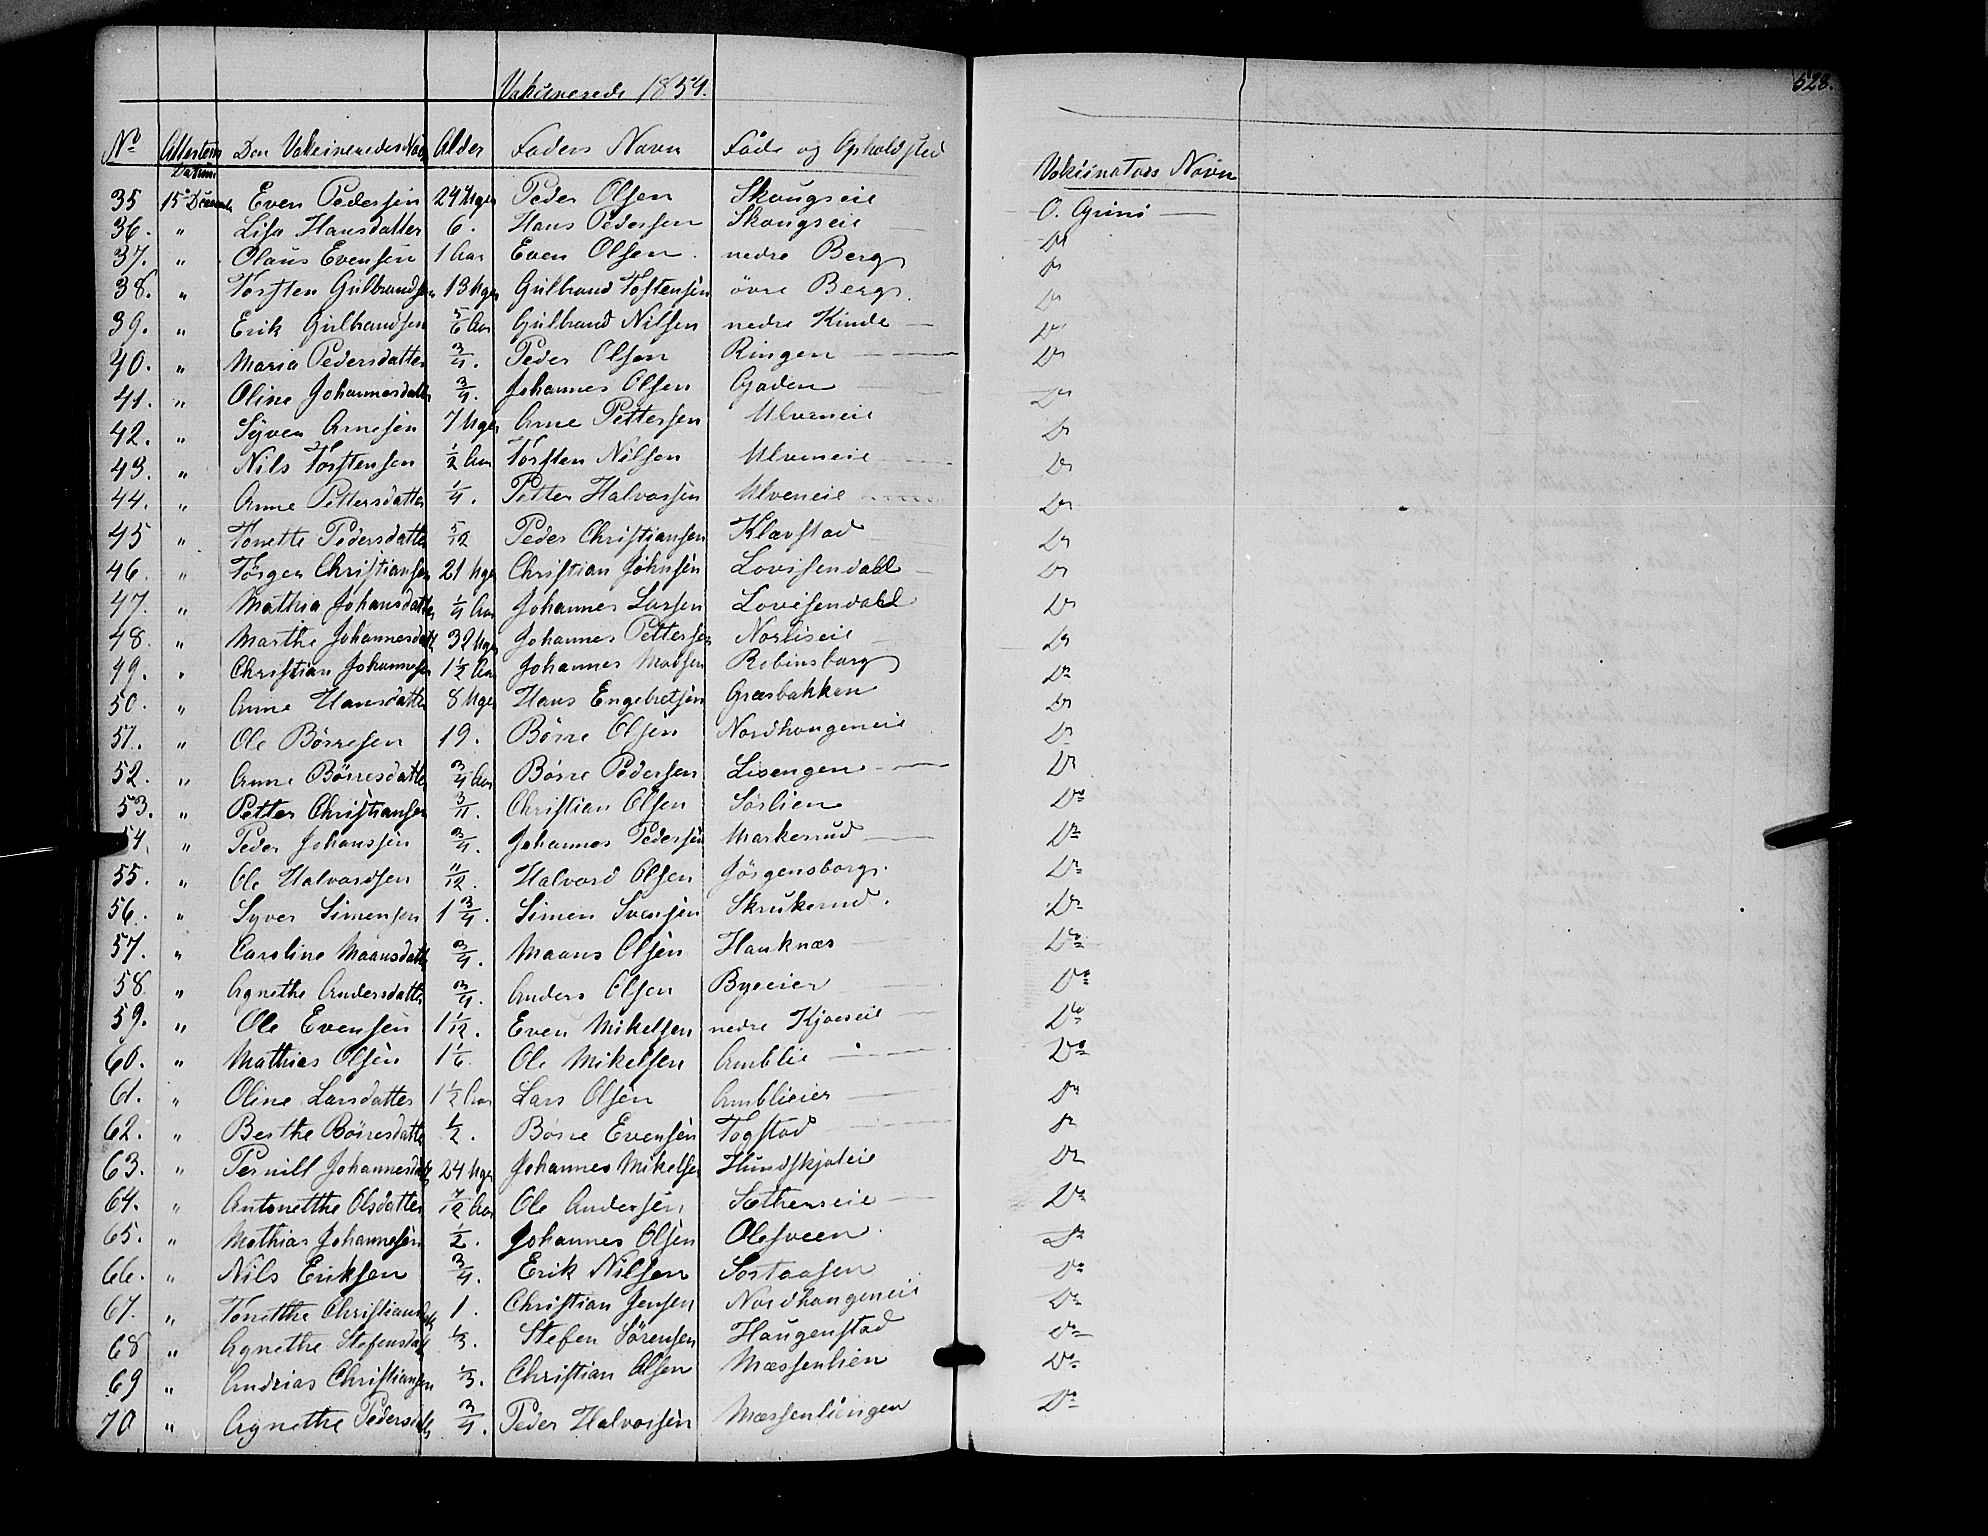 Vakcinerede 1854.
528.
No Attestens Datum Den Vakcineredes Navn Alder Faders Navn Føde og Opholdsted Vakcinators Navn
35 15 Decemb Even Pedersen 24 Uger Peder Olsen Skougseie O. Grini
36. " Lisa Hansdatter 6. Hans Pedersen Skougseie Do
37. " Olaus Evensen 1 Aar Even Olsen nedre Berg Do
38. " Torsten Gulbrandsen 13 Uger Gulbrand Tostensen øvre Berg. Do
39. " Erik Gulbrandsen 5/6 Aar Gulbrand Nilsen nedre Kinde Do
40. " Maria Pedersdatter 3/4. Peder Olsen Ringen Do
41. " Oline Johannesdatter 3/4. Johannes Olsen Gaden Do
42. " Syver Arnesen 7 Uger Arne Pettersen Ulveneie Do
43. " Nils Torstensen 1/2 Aar Torsten Nilsen Ulveneie Do
44. " Anne Pettersdatter 1/4. Petter Halvorsen Ulveneie Do
45 " Tonette Pedersdatter 5/12 Peder Christiansen Klavstad Do
46. " Jörgen Christiansen 21 Uger Christian Johnsen Lovisendahl Do
47. " Mathia Johansdatter 1/4 Aar Johannes Larsen Lovisendahl Do
48. " Marthe Johannesdatt 32 Uger Johannes Pettersen Norliseie Do
49. " Christian Johannesen 1 1/2 Aar Johannes Madsen Robinsborg Do
50. " Anne Hansdatter 8 Uger Hans Engebretsen Græsbakken Do
51. " Ole Börresen 19. Börre Olsen Nordhougeneie Do
52. " Anne Börresdatter 3/4 Aar Börre Pedersen Lisengen Do
53. " Petter Christiansen 3/4. Christian Olsen Sörlien Do
54. " Peder Johanssen 3/4. Johannes Pedersen Markerud Do
55. " Ole Halvordsen 11/12. Halvord Olsen Jörgensborg. Do
56. " Syver Simensen 1 3/4. Simen Svensen Skrukerud. Do
57. " Caroline Maansdatt 3/4. Maans Olsen Hauknæs Do
58 " Agnethe Andersdatter 3/4. Anders Olsen Byeeier Do
59. " Ole Evensen 1 1/12. Even Mikelsen nedre Kjoeseie Do
60. " Mathias Olsen 1 1/6. Ole Mikelsen Amblie Do
61. " Oline Larsdatter 1 1/2 Aar Lars Olsen Amblieier Do
62. " Berthe Börresdatter 1/2. Börre Evensen Togstad Do
63. " Pernill Johannesdatt 24 Uger Johannes Mikelsen Hundskjoleie Do
64. " Antonetthe Olsdatter 7/12 Aar Ole Andersen Sætherseie Do
65. " Mathias Johannesen 1/2. Johannes Olsen Olesveen. Do
66. " Nils Eriksen 3/4. Erik Nilsen Sortaasen Do
67. " Tonetthe Christiansdatt 1. Christian Jensen Nordhougeneie Do
68 " Agnethe Stefensdatt 1/3. Stefen Sörensen Haugenstad Do
69 " Andrias Christiansen 1/3. Christian Olsen Mæssenlien Do
70 " Agnethe Pedersdatt 3/4. Peder Halvorsen Mæssenliengen Do